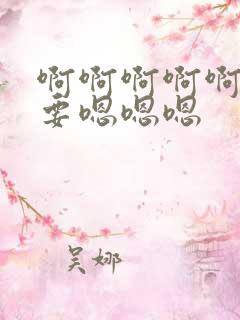 啊啊啊啊啊
要嗯嗯嗯
吴娜